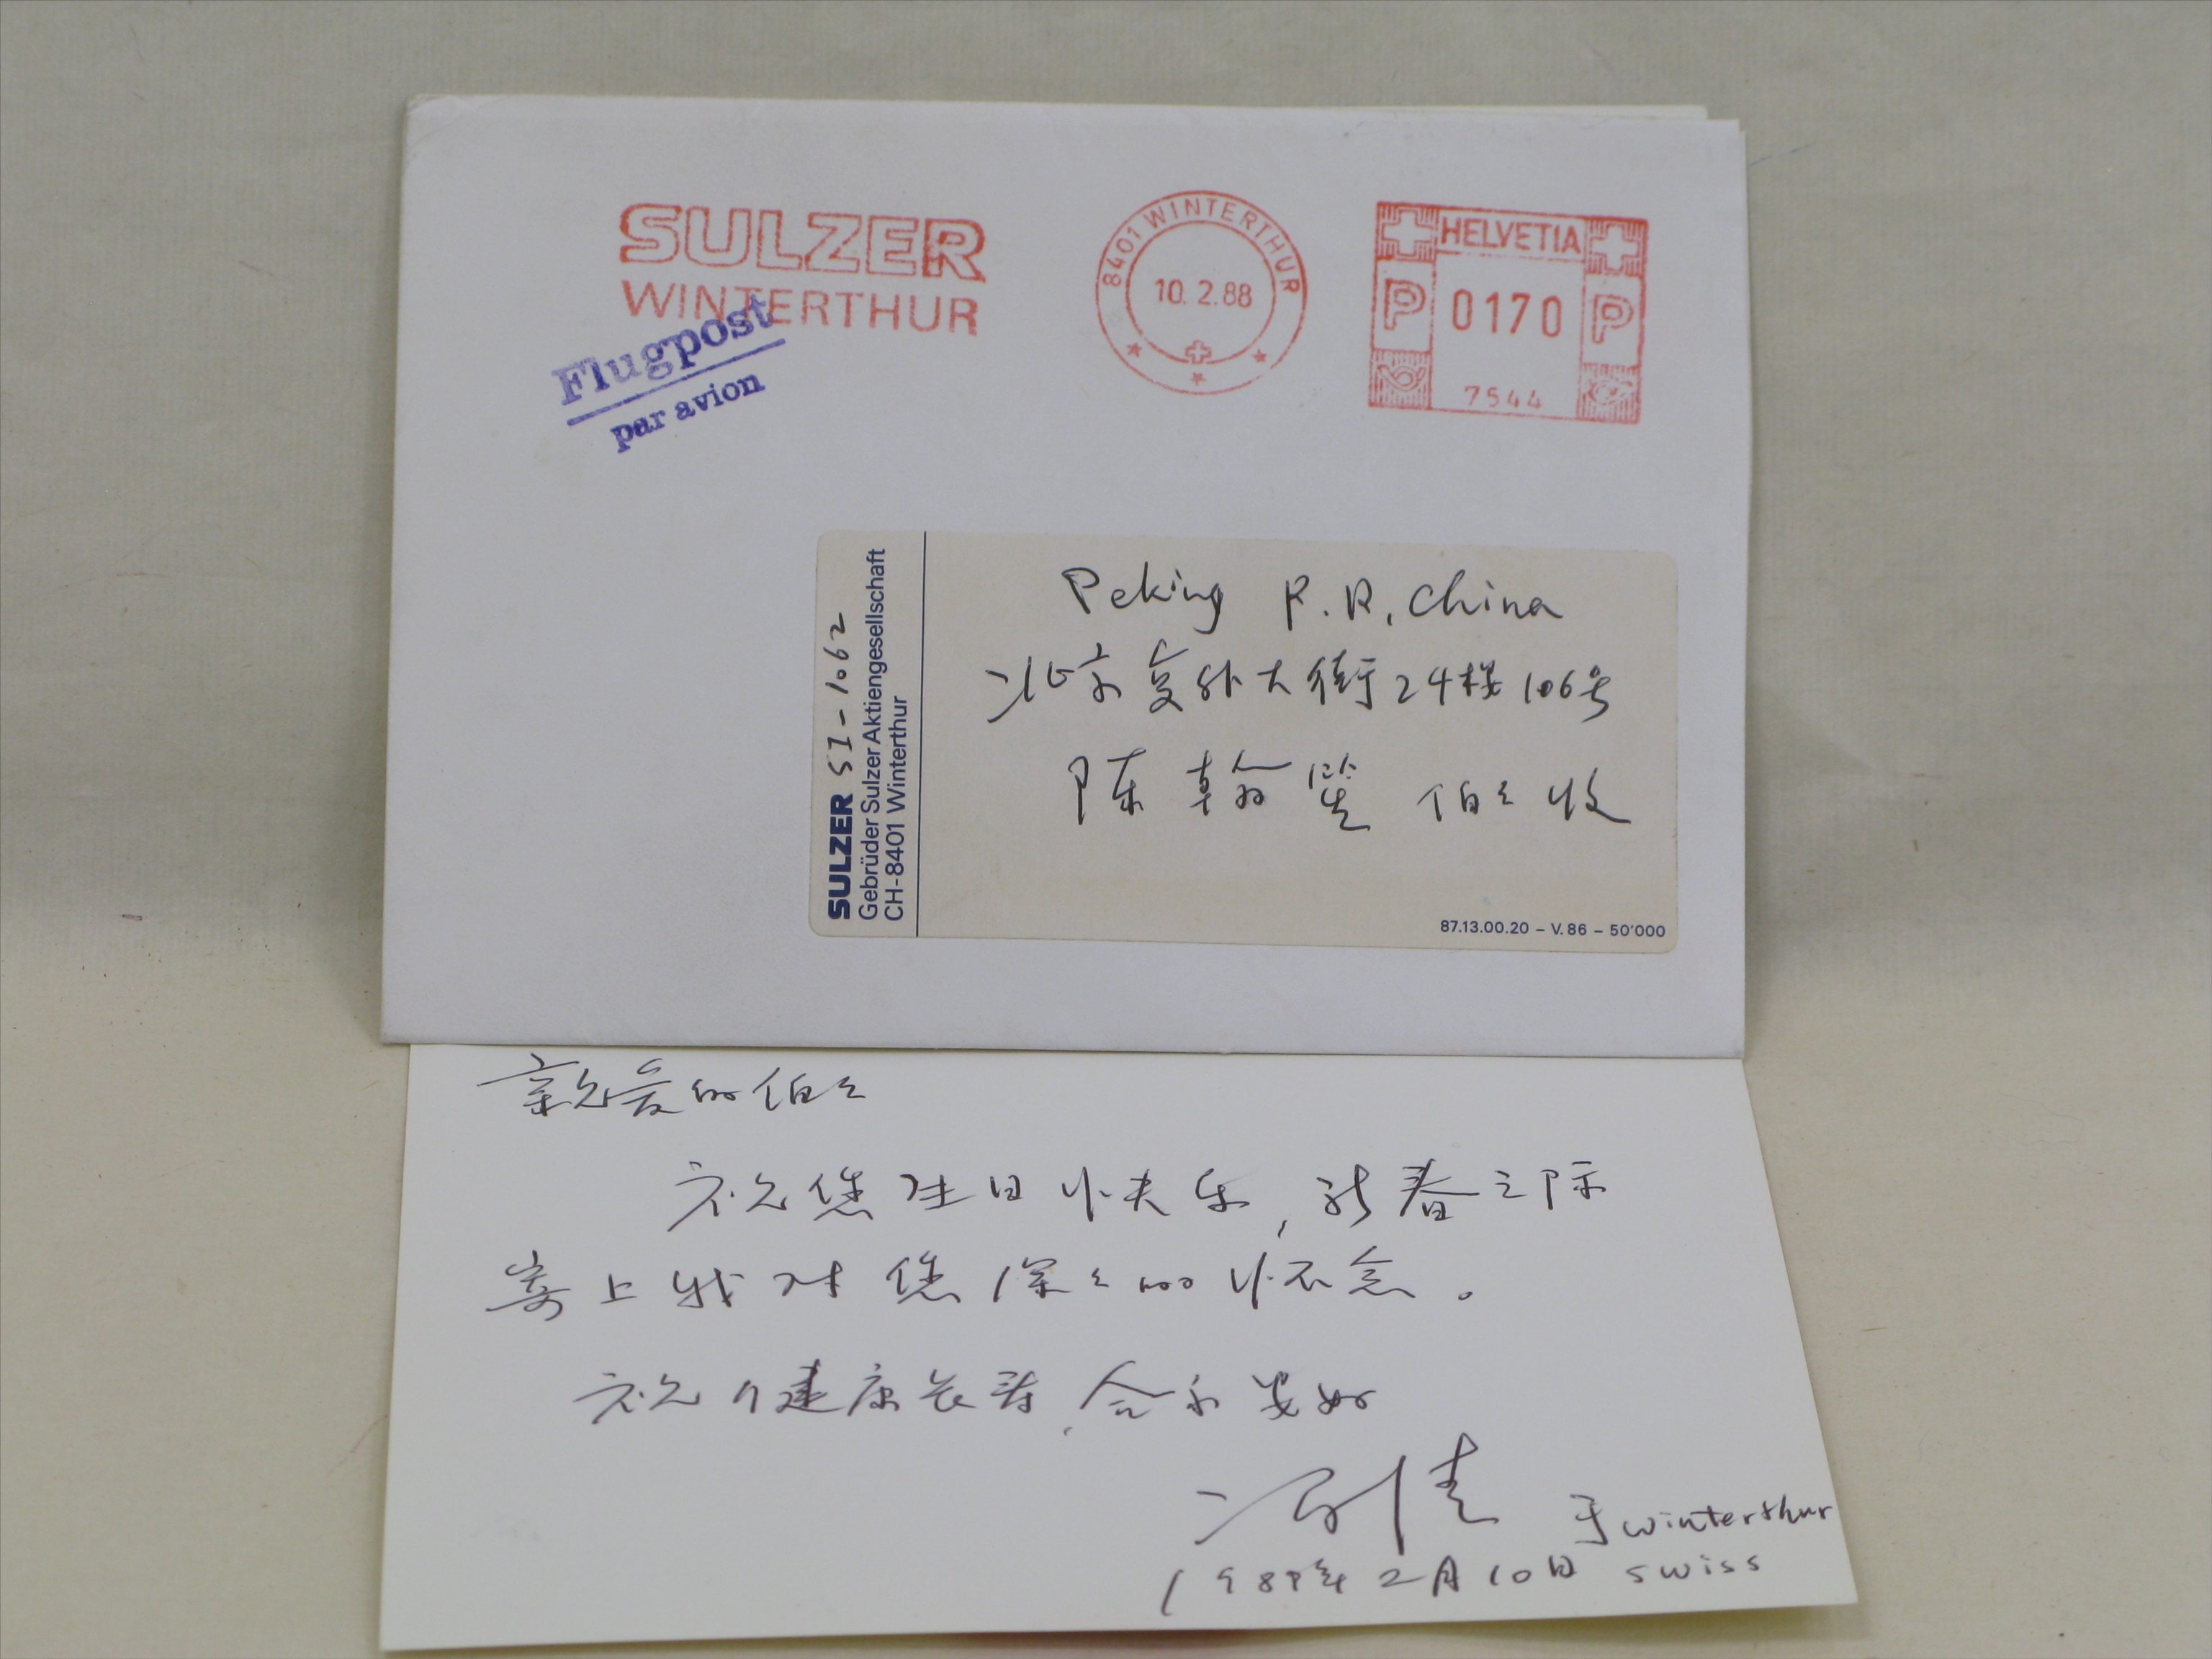 SULZER
WINTERTHUR
Flugpost
par avion
8401 WINTERTHUR
10.2.88
HELVETIA
P 0170 P
7544
SULZER SI-1062
Gebrüder Sulzer Aktiengesellschaft
CH-8401 Winterthur
Peking P.R. China
北京复外大街24楼106号
陈翰笙 伯伯 收
87.13.00.20 – V.86 – 50'000
亲爱的伯伯
祝您生日快乐,新春之际
寄上我对您深深的怀念。
祝 健康长寿,合家安好
于 winterthur
1988年2月10日 swiss